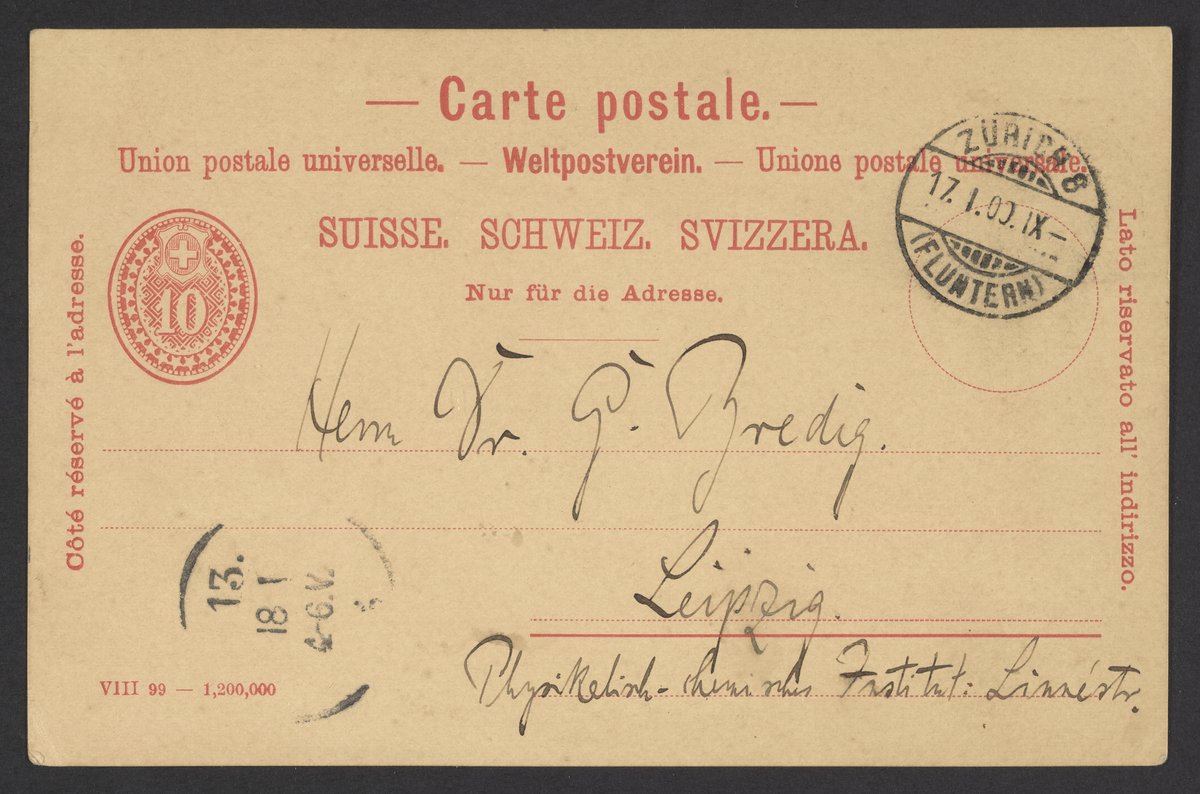 — Carte postale. —
Union postale universelle. — Weltpostverein. — Unione postale universale.
SUISSE. SCHWEIZ. SVIZZERA.
Nur für die Adresse.
10
Côté réservé à l'adresse.
Lato riservato all' indirizzo.
ZÜRICH 8
17. I. 00. IX —
(FLUNTERN)
Herrn Dr. G. Bredig.
Leipzig.
Physikalisch-chemisches Institut: Linnéstr.
13.
18 I
4-6.V.
VIII 99 — 1,200,000